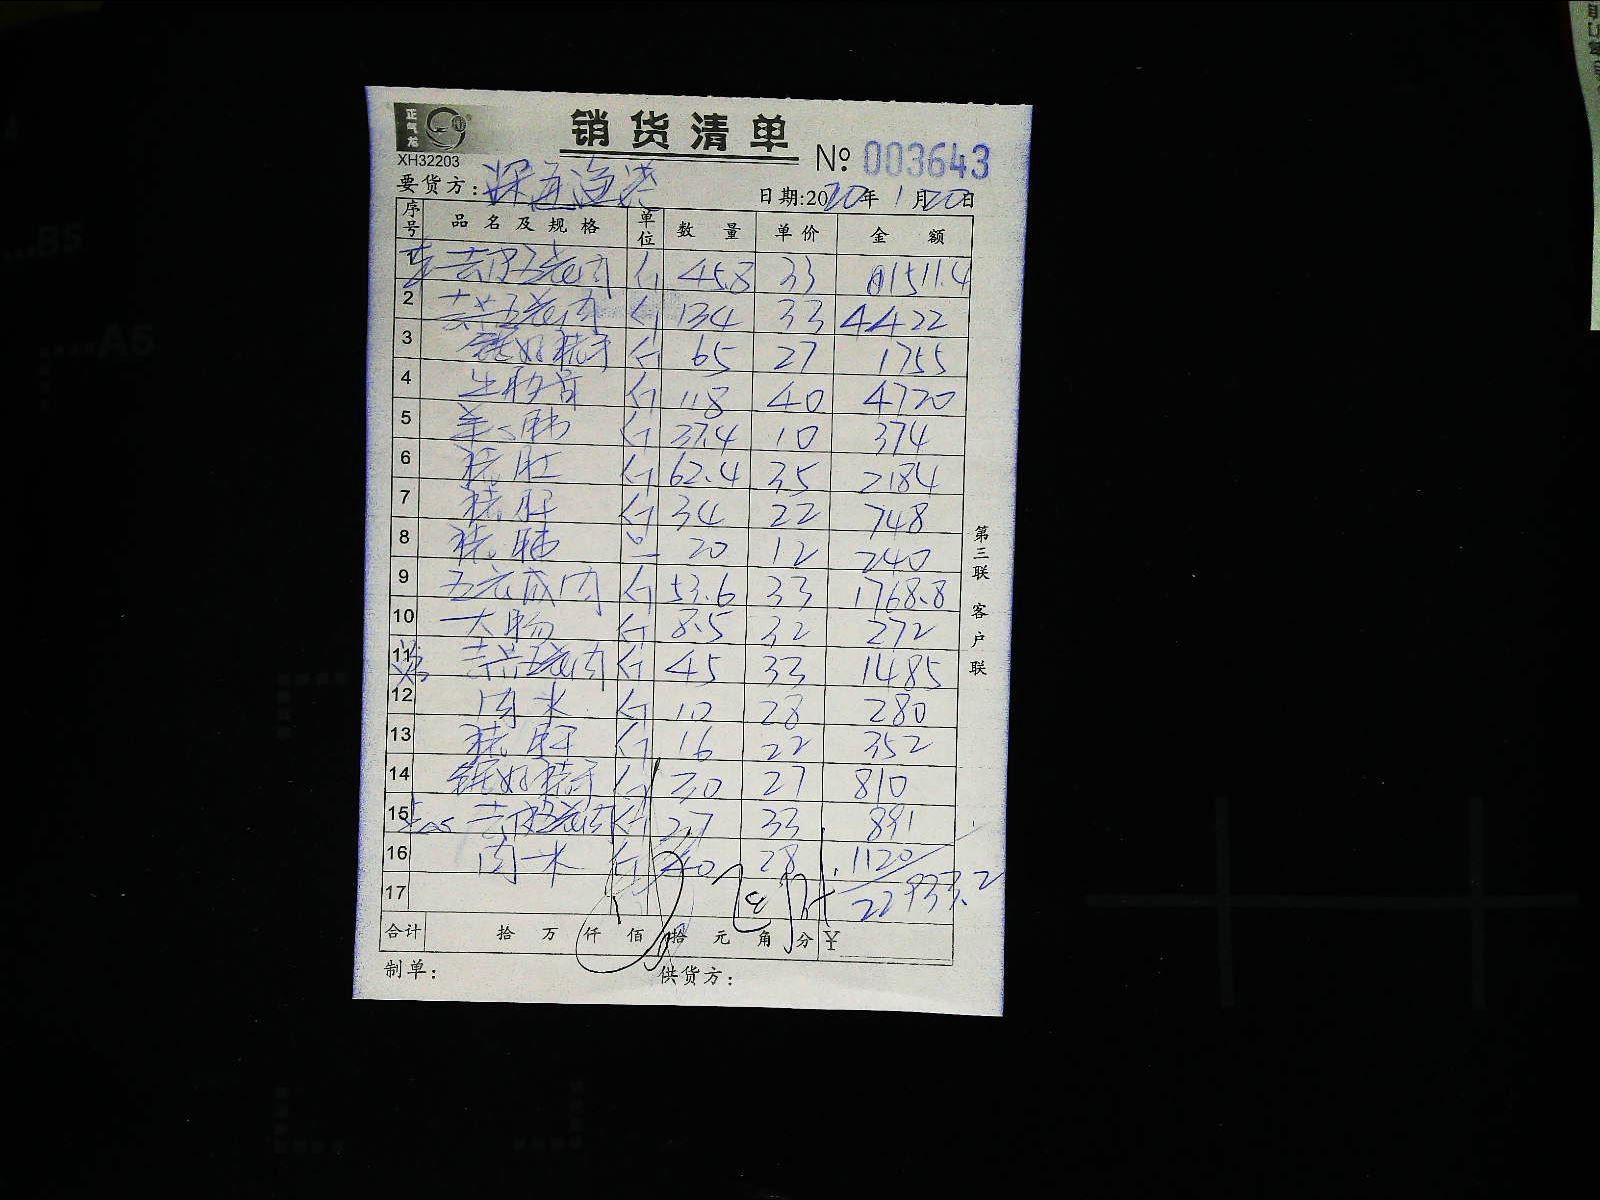 正气龙
XH32203
销货清单
№ 003643
要货方:
日期:2020年1月20日
序号 品名及规格 单位 数量 单价 金额
1 去皮五花肉 斤 45.8 33 1511.4
2 五花肉 斤 134 33 4422
3 斤 65 27 1755
4 斤 118 40 4720
5 斤 37.4 10 374
6 猪肚 斤 62.4 35 2184
7 猪肝 斤 34 22 748
8 猪 20 12 240
9 五花 肉 斤 53.6 33 1768.8
10 大肠 斤 8.5 32 272
11 五花肉 斤 45 33 1485
12 肉米 斤 10 28 280
13 猪肝 斤 16 22 352
14 斤 30 27 810
15 去皮五花肉 斤 27 33 891
16 肉米 斤 40 28 1120
17 22933.2
合计 拾 万 仟 佰 拾 元 角 分 ¥
制单: 供货方:
第三联 客户联
B5
A5